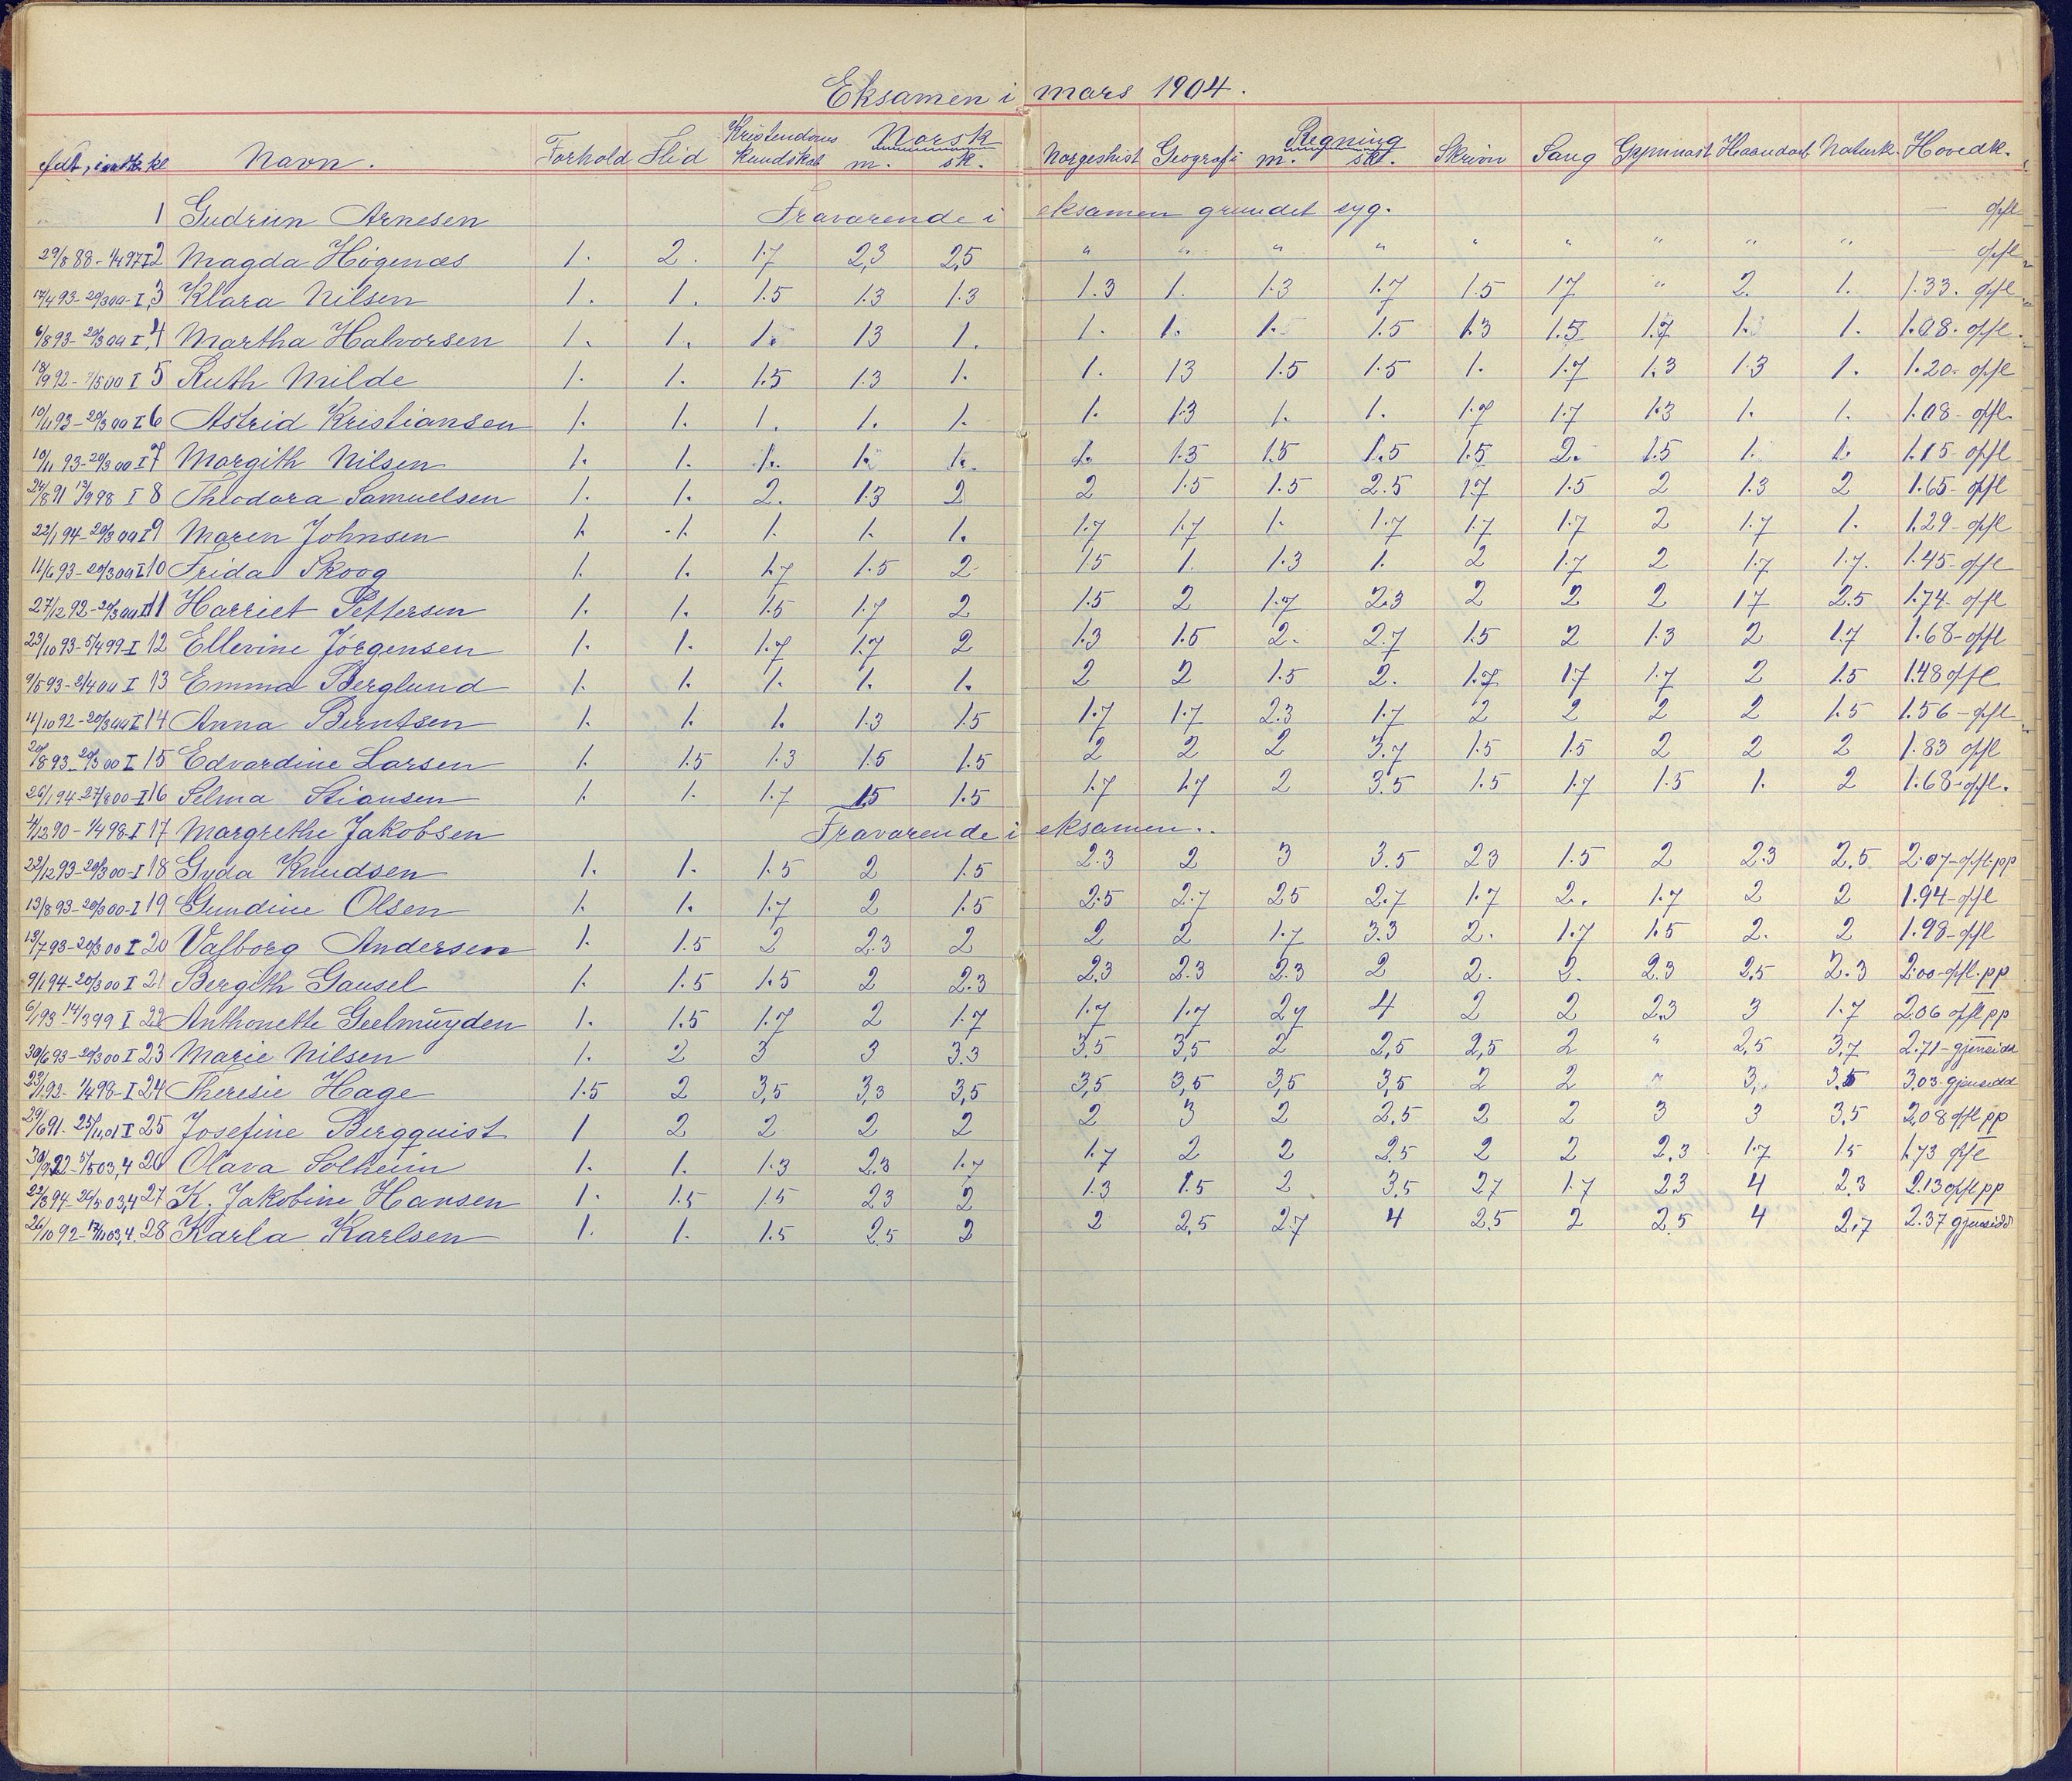 Eksamen i mars 1904.
født, indtk. kl Navn. Forhold Flid Kristendoms Kundskab Norsk m. sk. Norgeshist Geografi Regning m. skr. Skrivn Sang Gymnast Haandarb Naturk. Hovedk.
1 Gudrun Arnesen Fraværende i eksamen grundet syg. opfl
29/8 88 - 1/4 97 I 2 Magda Høgenæs 1. 2. 1.7 2,3 2,5 " " " " " " " " " — opfl
17/4 93 - 20/3 00 - I, 3 Klara Nilsen 1. 1. 1.5 1.3 1.3 1.3 1. 1.3 1.7 1.5 1.7 " 2. 1. 1.33. opfl
6/8 93 - 20/3 00 I, 4 Martha Halvorsen 1. 1. 1. 1.3 1. 1. 1. 1. 1.5 1.3 1.5 1.7 1. 1. 1.08. opfl.
18/9 92 - /5 00 I 5 Ruth Milde 1. 1. 1.5 1.3 1. 1. 1.3 1.5 1.5 1. 1.7 1.3 1.3 1. 1.20. opfl
10/11 93 - 20/3 00 I 6 Astrid Kristiansen 1. 1. 1. 1. 1. 1. 1.3 1. 1. 1.7 1.7 1.3 1. 1. 1.08 - opfl.
10/11 93 - 20/3 00 I 7 Margith Nilsen 1. 1. 1. 1. 1. 1. 1.3 1.5 1.5 1.5 2. 1.5 1. 1. 1.15 - opfl
24/8 91 13/9 98 I 8 Theodora Samuelsen 1. 1. 2. 1.3 2 2 1.5 1.5 2.5 1.7 1.5 2 1.3 2 1.65 - opfl
22/1 94 - 20/3 00 I 9 Maren Johnsen 1. 1. 1. 1. 1. 1.7 1.7 1. 1.7 1.7 1.7 2 1.7 1. 1.29 - opfl
11/6 93 - 20/3 00 I 10 Frida Skoog 1. 1. 1.7 1.5 2 1.5 1. 1.3 1. 2 1.7 2 1.7 1.7. 1.45 - opfl
27/12 92 - 20/3 00 I 11 Harriet Pettersen 1. 1. 1.5 1.7 2 1.5 2 1.7 2.3 2 2 2 1.7 2.5 1.74 - opfl
23/10 93 - 5/4 99 - I 12 Ellevine Jørgensen 1. 1. 1.7 1.7 2 1.3 1.5 2. 2.7 1.5 2 1.3 2 1.7 1.68 - opfl
9/5 93 - 2/4 00 I 13 Emma Berglund 1. 1. 1. 1. 1. 2 2 1.5 2. 1.7 1.7 1.7 2 1.5 1.48 opfl
11/10 92 - 20/3 00 I 14 Anna Berntsen 1. 1. 1. 1.3 1.5 1.7 1.7 2.3 1.7 2 2 2 2 1.5 1.56 - opfl
20/8 93 - 20/3 00 I 15 Edvardine Larsen 1. 1.5 1.3 1.5 1.5 2 2 2 3.7 1.5 1.5 2 2 2 1.83 opfl
26/1 94 - 27/8 00 - I 16 Selma Stiansen 1. 1. 1.7 1.5 1.5 1.7 1.7 2 3.5 1.5 1.7 1.5 1. 2 1.68 - opfl.
4/12 90 - 1/4 98 - I 17 Margrethe Jakobsen Fraværende i eksamen..
22/12 93 - 20/3 00 - I 18 Gyda Knudsen 1. 1. 1.5 2 1.5 2.3 2 3 3.5 2.3 1.5 2 2.3 2.5 2.07 - opfl. pp
13/8 93 - 20/3 00 - I 19 Gundine Olsen 1. 1. 1.7 2 1.5 2.5 2.7 2.5 2.7 1.7 2. 1.7 2 2 1.94 - opfl
13/7 93 - 20/3 00 I 20 Valborg Andersen 1. 1.5 2 2.3 2 2 2 1.7 3.3 2. 1.7 1.5 2. 2 1.98 - opfl
9/1 94 - 20/3 00 I 21 Bergith Gausel 1. 1.5 1.5 2 2.3 2.3 2.3 2.3 2 2. 2. 2.3 2,5 2.3 2.00 - opfl. pp
6/1 93 - 14/3 99 I 22 Anthonette Geelmuyden 1. 1.5 1.7 2 1.7 1.7 1.7 2.7 4 2 2 2.3 3 1.7 2.06 opfl pp
30/6 93 - 20/3 00 I 23 Marie Nilsen 1. 2 3 3 3.3 3.5 3,5 2 2,5 2,5 2 " 2,5 3,7 2.71 - gjensidd
23/1 92 - 1/4 98 - I 24 Theresie Hage 1.5 2 3,5 3,3 3,5 3,5 3,5 3,5 3,5 2 2 " 3, 3.5 3,03 - gjensidd
29/6 91 - 25/11 01 I 25 Josefine Bergquist 1 2 2 2 2 2 3 2 2.5 2 2 3 3 3,5 2,08 opfl pp
30/9 92 - 5/5 03, 4 26 Olava Solheim 1. 1. 1.3 2.3 1.7 1.7 2 2 2.5 2 2 2.3 1.7 1.5 1.73 opfl
22/3 94 - 26/5 03, 4 27 K. Jakobine Hansen 1. 1.5 1.5 2.3 2 1.3 1.5 2 3.5 2.7 1.7 2.3 4 2.3 2.13 opfl pp
26/10 92 - 17/11 03, 4. 28 Karla Karlsen 1. 1. 1.5 2.5 2 2 2,5 2.7 4 2.5 2 2.5 4 2.7 2.37 gjensidd